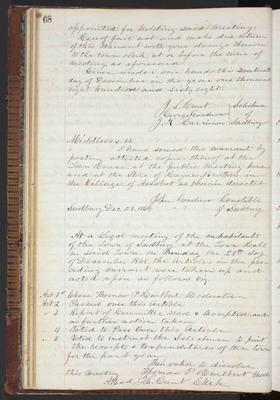 68
appointed for holding said meeting.
Hereof fail not and make due return
of this Warrant with your doings thereon
to the town clerk at or before the time of
meeting as aforesaid.
Given under our hands this
day of December in the year one thousand
eight hundred and sixty eight.
J. S. Hunt Selectmen
George Goodnow of
Sudbury
Middlesex ss.
I have served this warrant by
posting attested copies thereof at the
Town House at the public meeting house
and at the Store of Brothers in
the Village of as therein directed
John Goodnow Constable
Sudbury Dec. 28 1868 of Sudbury
At a Legal meeting of the inhabitants
of the Town of Sudbury at the Town House
in said Town on Monday the 28th day
of December 1868 the articles in the pre-
ceding warrant were taken up and
acted upon as follows viz
Art 1st Chose Thomas P. Hurlbut Moderator
Art 2 Passed over this article
" 3 Report of Committee read & accepted and
no further action taken
" 4 Voted to Pass Over this Article
" 5 Voted to instruct the Selectmen to print
the receipts & expenditures of the town
for the past year
Then voted to dissolve
this meeting Thomas P. Hurlbut
Attest J. S. Hunt Clerk